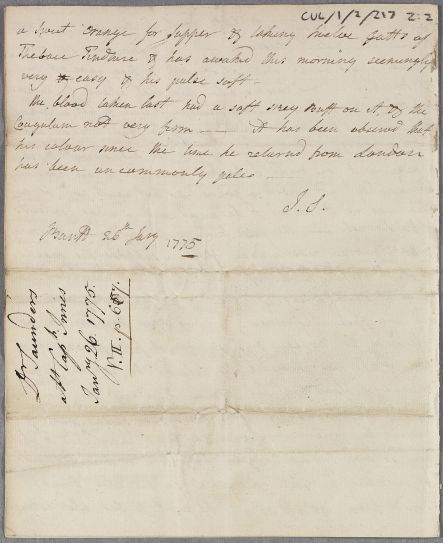 CUL/1/2/217 2:2
a Sweet orange for Supper & taking twelve gutts of
Thebaic Tincture & has awaked this morning seemingly
very easy & his pulse soft
The blood taken last had a soft Buff on it & the
Coagulum not very firm — it has been observed that
his colour since the time he returned from London
has been uncommonly pale —
J. S.
Banff 26th Jary 1775
Dr Saunders
abt Capn Innes
Jany 26 1775.
V. II. p. 667.